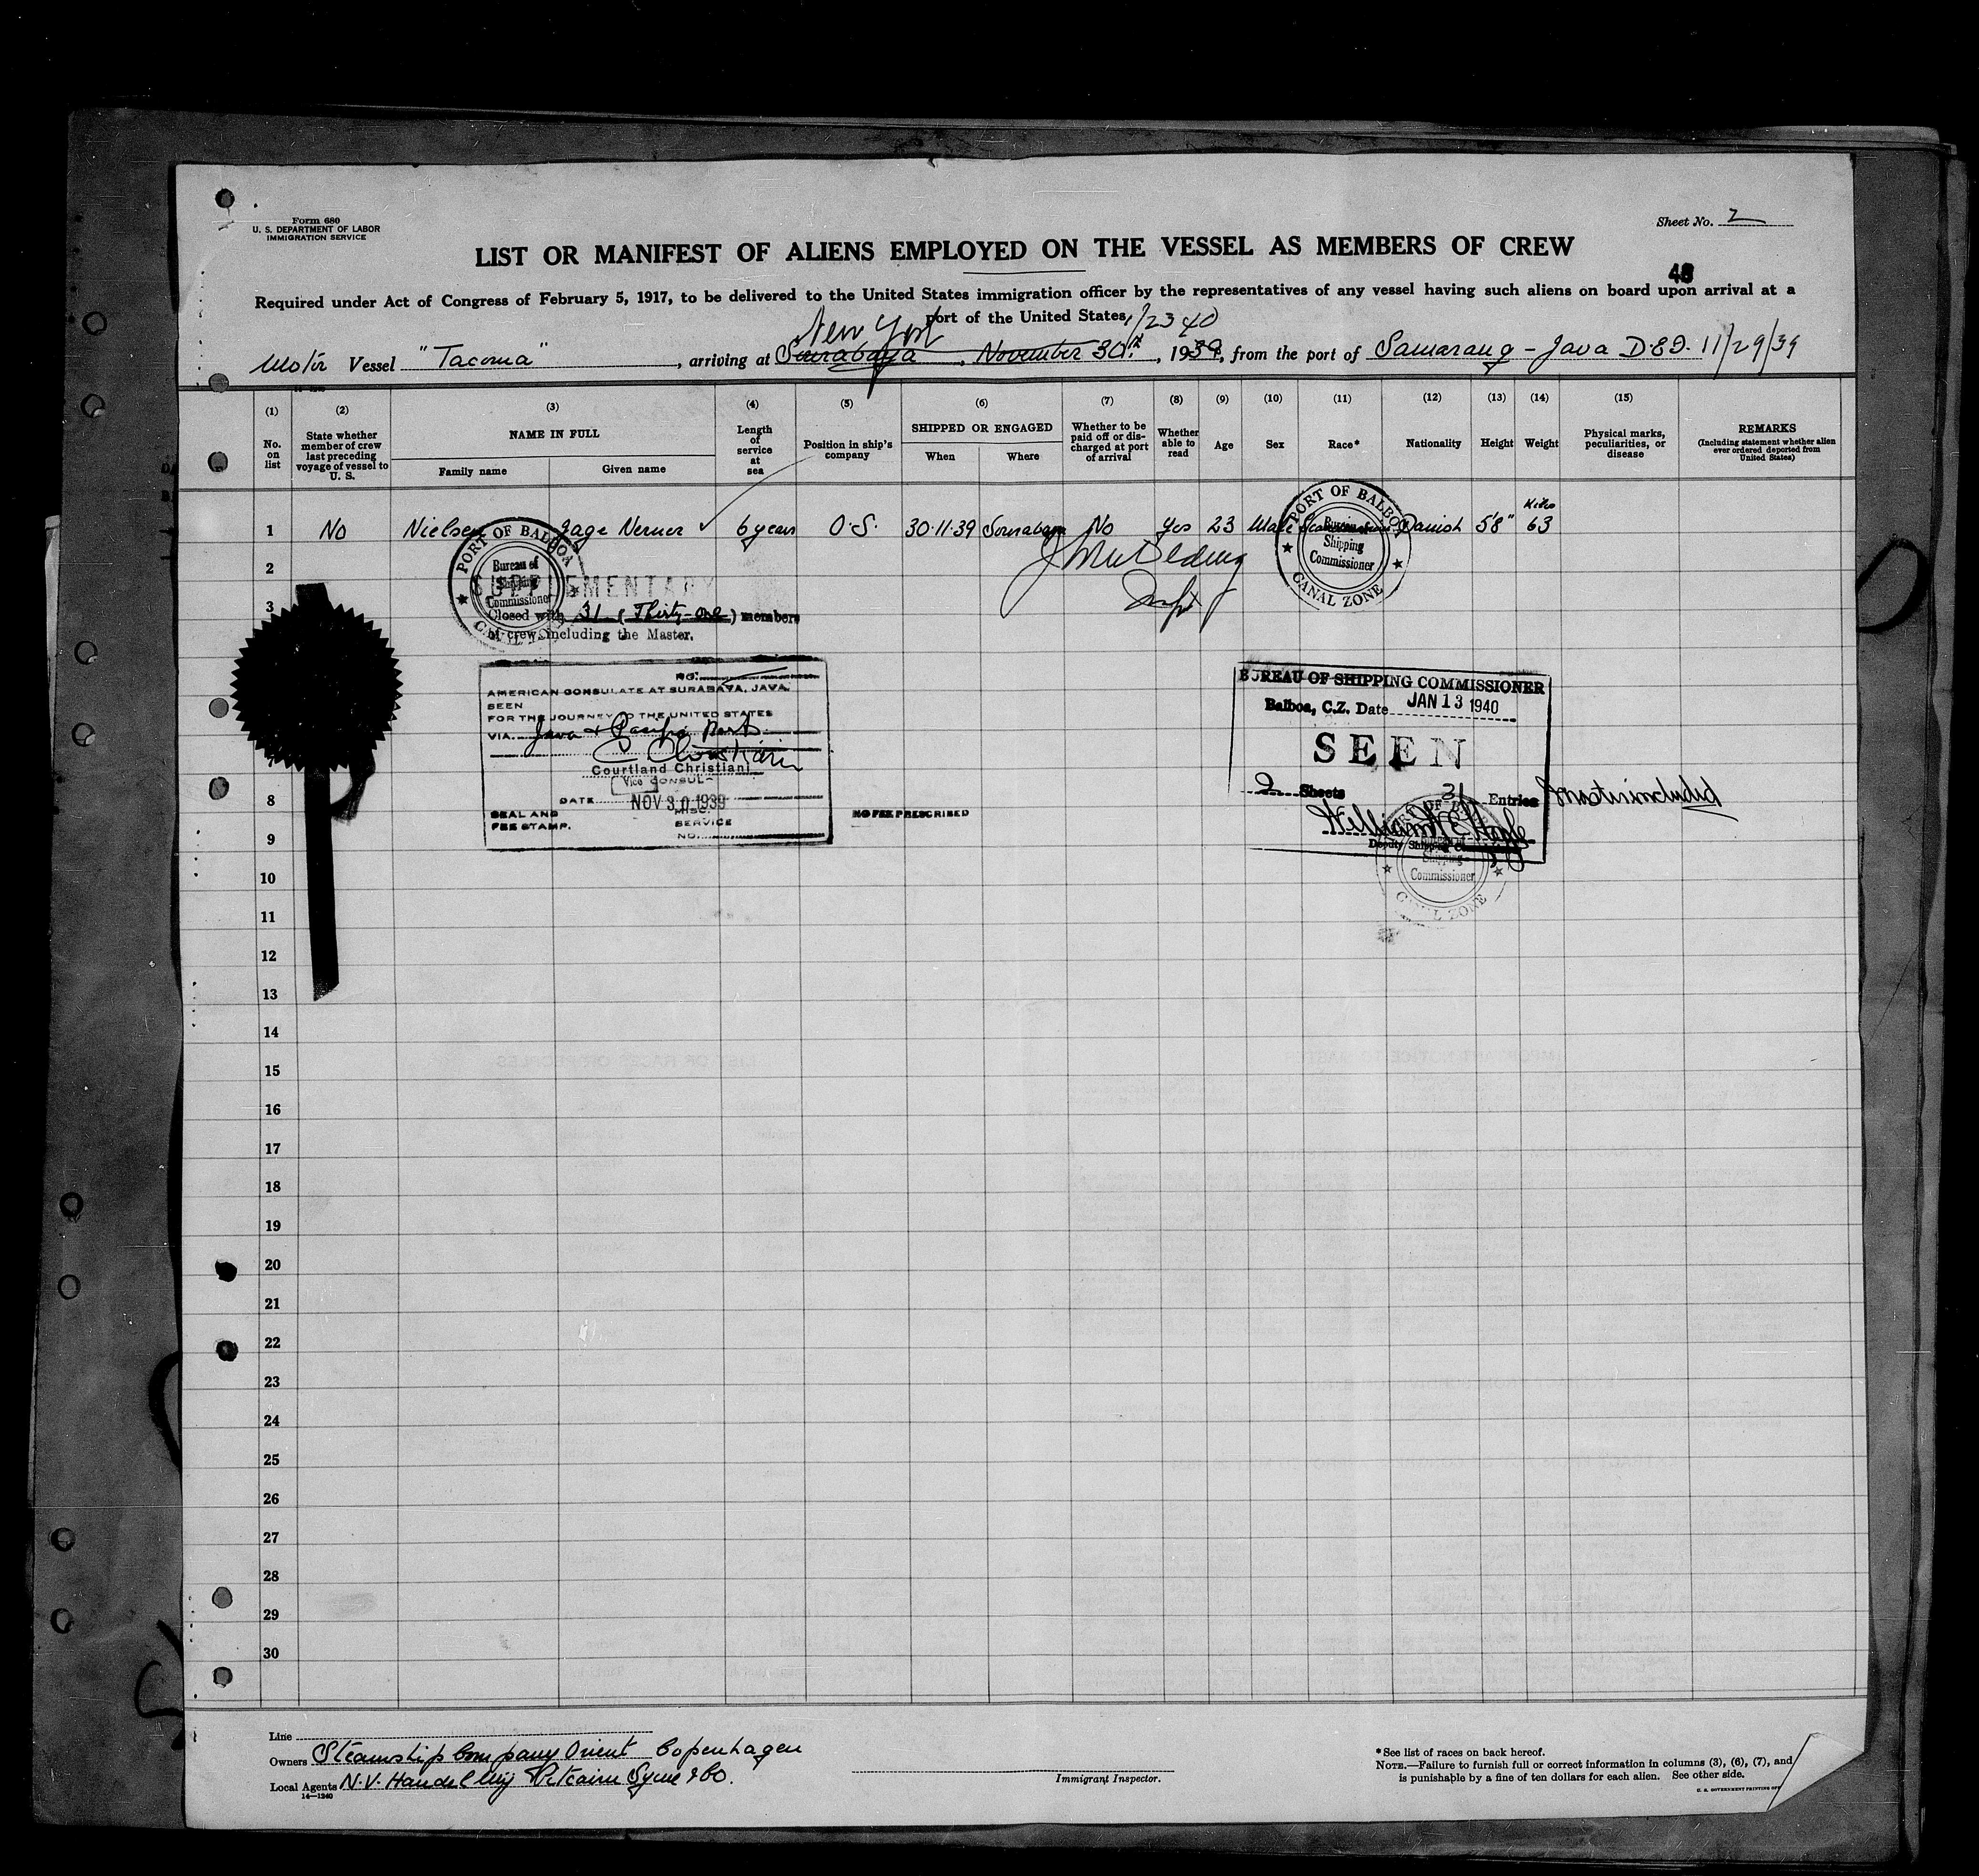 Form 680
U. S. DEPARTMENT OF LABOR
IMMIGRATION SERVICE
Sheet No. 2
LIST OR MANIFEST OF ALIENS EMPLOYED ON THE VESSEL AS MEMBERS OF CREW
48
Required under Act of Congress of February 5, 1917, to be delivered to the United States immigration officer by the representatives of any vessel having such aliens on board upon arrival at a
port of the United States
New York 1/23 40
Motor Vessel "Tacoma", arriving at Sourabaya, November 30th, 1939, from the port of Samarang - Java D.E.I. 11/29/39
(1) (2) (3) (4) (5) (6) (7) (8) (9) (10) (11) (12) (13) (14) (15)
No. on list
State whether member of crew last preceding voyage of vessel to U. S.
NAME IN FULL
Family name
Given name
Length of service at sea
Position in ship's company
SHIPPED OR ENGAGED
When
Where
Whether to be paid off or discharged at port of arrival
Whether able to read
Age
Sex
Race*
Nationality
Height
Weight
Physical marks, peculiarities, or disease
REMARKS
(Including statement whether alien ever ordered deported from United States)
Kilo
1 No Nielsen Aage Verner 6 years O.S. 30-11-39 Sourabaya No Yes 23 Male Danish 5'8" 63
PORT OF BALBOA
Bureau of
Shipping
Commissioner
CANAL ZONE
PORT OF BALBOA
Bureau of
Shipping
Commissioner
CANAL ZONE
2
SUPPLEMENTARY
3
Closed with 31 (Thirty-One) members
of crew including the Master.
NO.
AMERICAN CONSULATE AT SURABAYA, JAVA.
SEEN
FOR THE JOURNEY TO THE UNITED STATES
VIA Java + Pacific Ports
Courtland Christiani
Vice CONSUL
DATE NOV 30 1939
SEAL AND
FEE STAMP.
MISC.
SERVICE
NO.
NO FEE PRESCRIBED
BUREAU OF SHIPPING COMMISSIONER
Balboa, C.Z. Date JAN 13 1940
SEEN
2 Sheets 31 Entries Master included
Deputy Shipping Commissioner
Shipping
Commissioner
CANAL ZONE
8
9
10
11
12
13
14
15
16
17
18
19
20
21
22
23
24
25
26
27
28
29
30
Line
Owners Steamship Company Orient Copenhagen
Local Agents N.V. Handel Mij Pitcairn Syme & Co.
14—1240
Immigrant Inspector.
*See list of races on back hereof.
NOTE.—Failure to furnish full or correct information in columns (3), (6), (7), and
is punishable by a fine of ten dollars for each alien. See other side.
U. S. GOVERNMENT PRINTING OFF